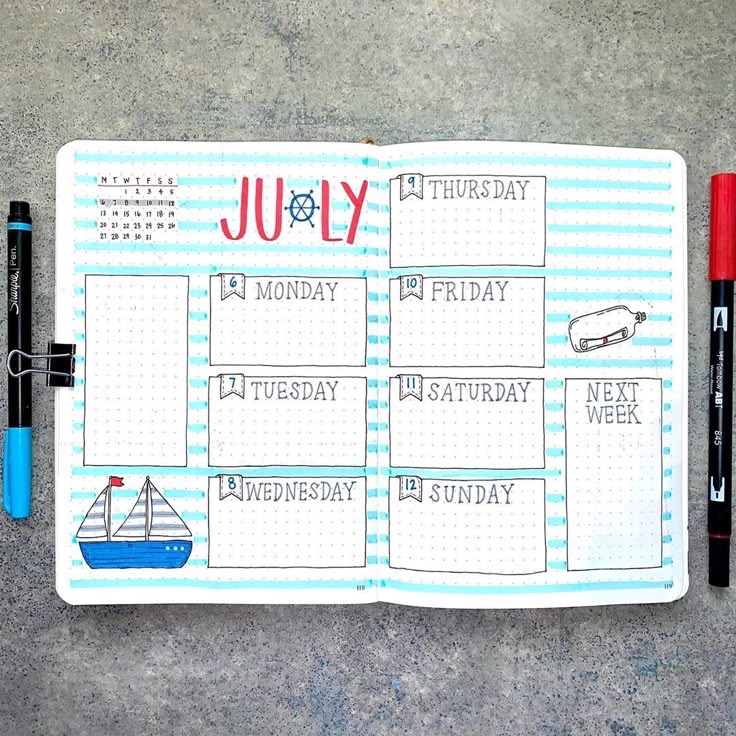 M T W T F S S
1 2 3 4 5
6 7 8 9 10 11 12
13 14 15 16 17 18 19
20 21 22 23 24 25 26
27 28 29 30 31
JULY
6 MONDAY
7 TUESDAY
8 WEDNESDAY
118
9 THURSDAY
10 FRIDAY
11 SATURDAY
12 SUNDAY
NEXT
WEEK
119
Sharpie Pen.
Tombow ABT
845